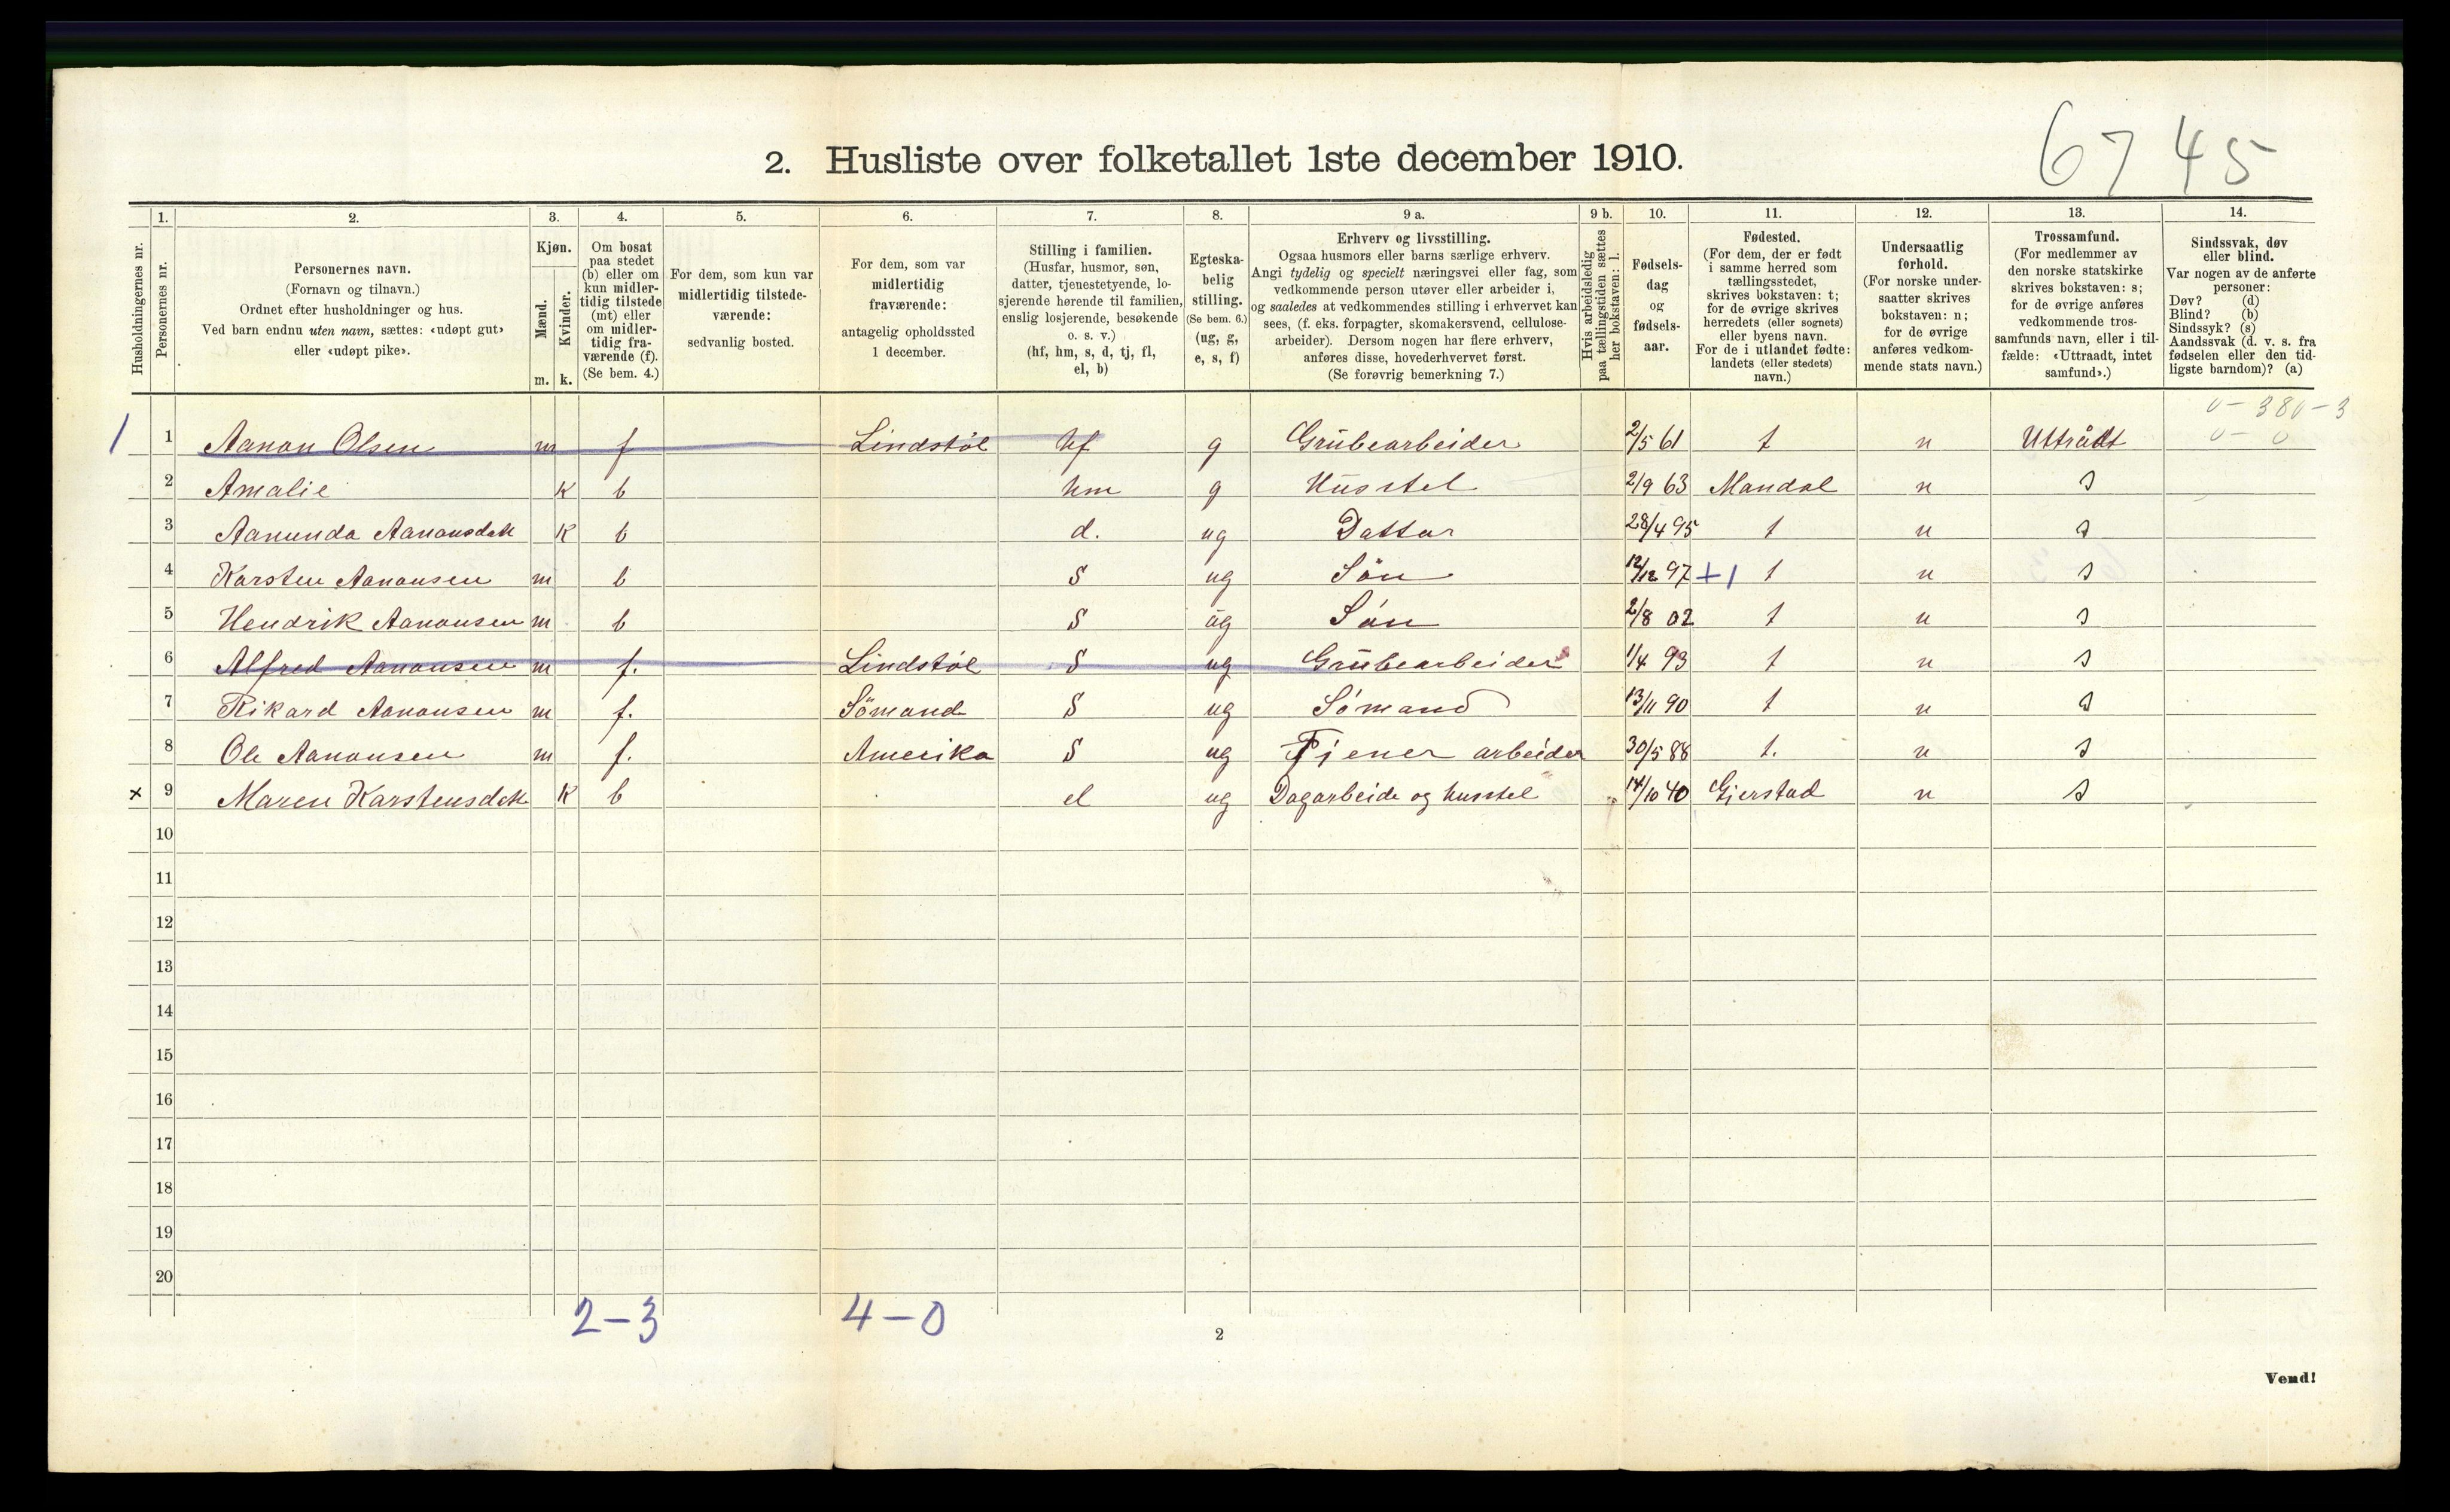 6745
2. Husliste over folketallet 1ste december 1910.
1. 2. 3. 4. 5. 6. 7. 8. 9 a. 9 b. 10. 11. 12. 13. 14.
Husholdningernes nr.
Personernes nr.
Personernes navn.
(Fornavn og tilnavn.)
Ordnet efter husholdninger og hus.
Ved barn endnu uten navn, sættes: «udøpt gut»
eller «udøpt pike».
Kjøn.
Mænd.
Kvinder.
m. k.
Om bosat
paa stedet
(b) eller om
kun midler-
tidig tilstede
(mt) eller
om midler-
tidig fra-
værende (f).
(Se bem. 4.)
For dem, som kun var
midlertidig tilstede-
værende:
sedvanlig bosted.
For dem, som var
midlertidig
fraværende:
antagelig opholdssted
1 december.
Stilling i familien.
(Husfar, husmor, søn,
datter, tjenestetyende, lo-
sjerende hørende til familien,
enslig losjerende, besøkende
o. s. v.)
(hf, hm, s, d, tj, fl,
el, b)
Egteska-
belig
stilling.
(Se bem. 6.)
(ug, g,
e, s, f)
Erhverv og livsstilling.
Ogsaa husmors eller barns særlige erhverv.
Angi tydelig og specielt næringsvei eller fag, som
vedkommende person utøver eller arbeider i,
og saaledes at vedkommendes stilling i erhvervet kan
sees, (f. eks. forpagter, skomakersvend, cellulose-
arbeider). Dersom nogen har flere erhverv,
anføres disse, hovederhvervet først.
(Se forøvrig bemerkning 7.)
Hvis arbeidsledig
paa tællingstiden sættes
her bokstaven: l.
Fødsels-
dag
og
fødsels-
aar.
Fødested.
(For dem, der er født
i samme herred som
tællingsstedet,
skrives bokstaven: t;
for de øvrige skrives
herredets (eller sognets)
eller byens navn.
For de i utlandet fødte:
landets (eller stedets)
navn.)
Undersaatlig
forhold.
(For norske under-
saatter skrives
bokstaven: n;
for de øvrige
anføres vedkom-
mende stats navn.)
Trossamfund.
(For medlemmer av
den norske statskirke
skrives bokstaven: s;
for de øvrige anføres
vedkommende tros-
samfunds navn, eller i til-
fælde: «Uttraadt, intet
samfund».)
Sindssvak, døv
eller blind.
Var nogen av de anførte
personer:
Døv? (d)
Blind? (b)
Sindssyk? (s)
Aandssvak (d. v. s. fra
fødselen eller den tid-
ligste barndom)? (a)
0-380-3
1 1 Aanon Olsen m f Lindstöl hf g Grubearbeider 2/5 61 t n Uttrådt 0-0
2 Amalie K b hm g Husstel 2/9 63 Mandal n s
3 Aanunda Aanonsdatt K b d. ug Dattar 28/4 95 t n s
4 Karsten Aanonsen m b S ug Sön 12/12 97 +1 t n s
5 Hendrik Aanonsen m b S ug Sön 2/8 02 t n s
6 Alfred Aanonsen m f. Lindstöl S ug Grubearbeider 1/4 93 t n s
7 Rikard Aanonsen m f. Sömand S ug Sömand 13/11 90 t n s
8 Ole Aanonsen m f. Amerika S ug Tjener arbeider 30/5 88 t. n s
x 9 Maren Karstensdatt K b el ug Dagarbeide og husstel 14/10 40 Gjerstad n s
10
11
12
13
14
15
16
17
18
19
20
2-3 4-0
2
Vend!